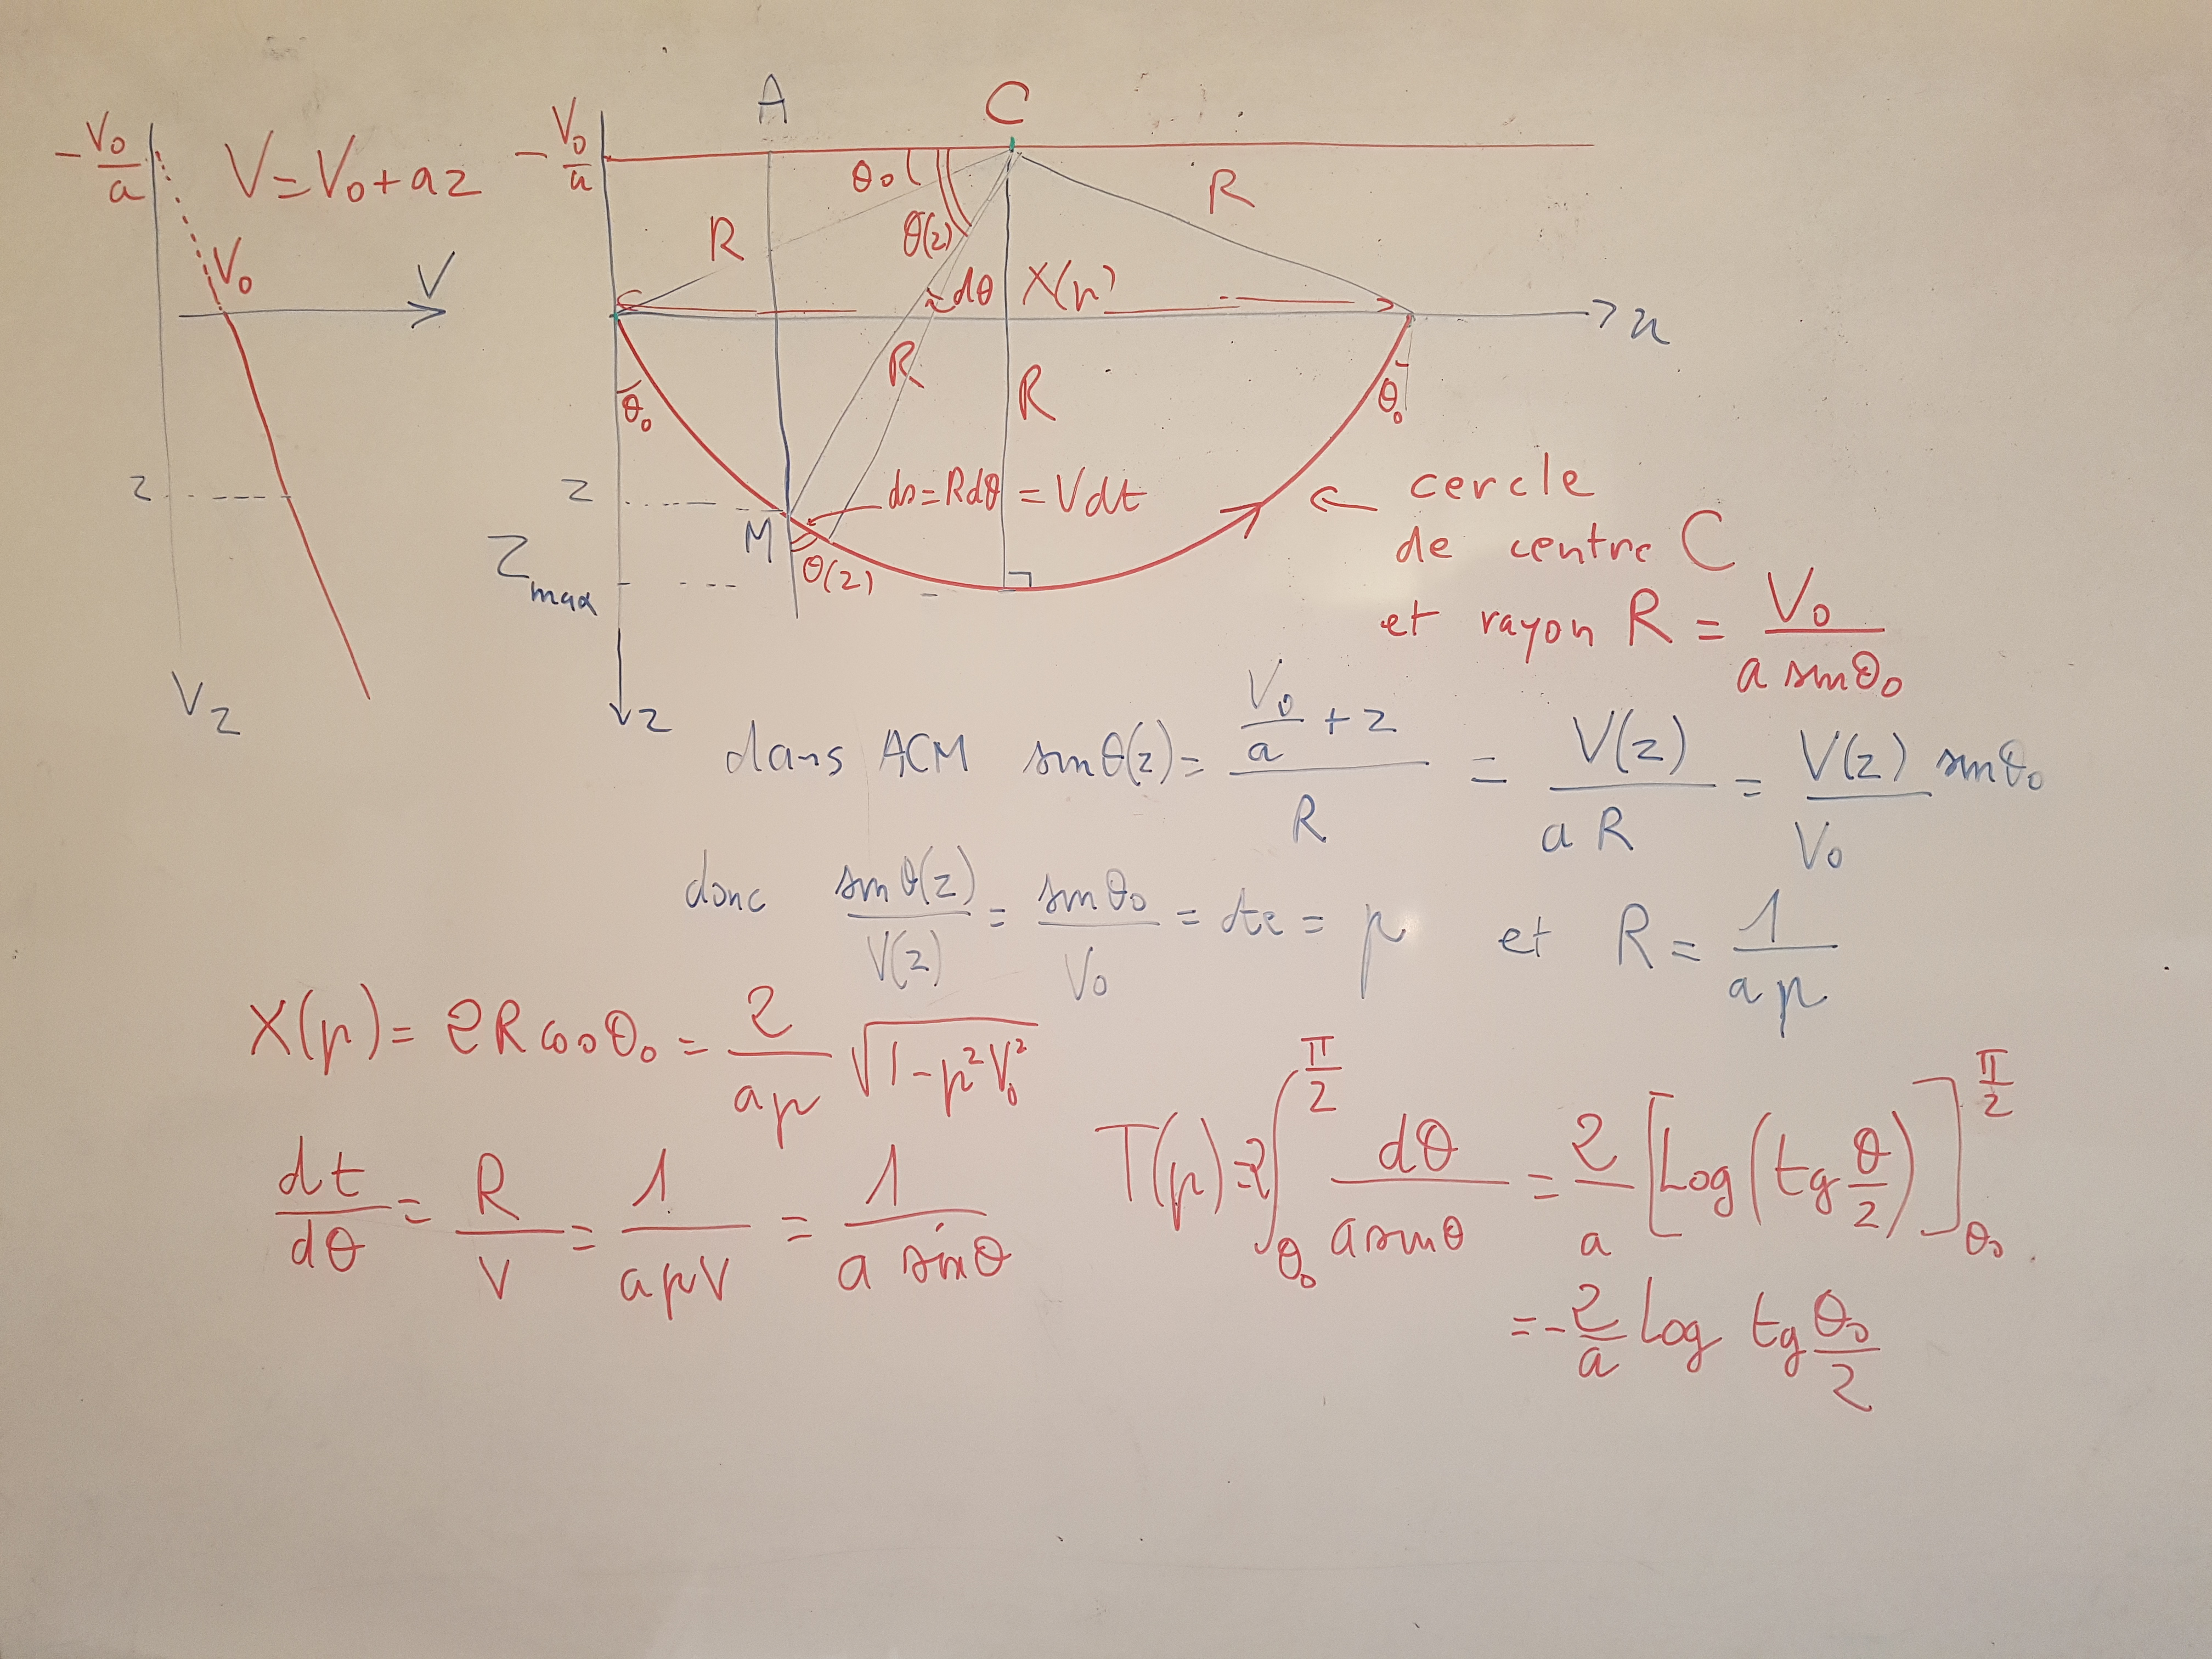 A
C
-V₀/a
V = V₀ + az
-V₀/a
θ₀
R
θ(z)
R
V₀
V
dθ
X(p)
x
R
R
θ₀
θ₀
z
z
ds = Rdθ = Vdt
← cercle
M
de centre C
Zmax
θ(z)
et rayon R = V₀/(a sinθ₀)
z
z
dans ACM sinθ(z) = (V₀/a + z)/R = V(z)/(a R) = V(z)/V₀ sinθ₀
donc sinθ(z)/V(z) = sinθ₀/V₀ = cte = p et R = 1/(ap)
X(p) = 2R cosθ₀ = 2/(ap) √(1-p²V₀²)
dt/dθ = R/V = 1/(apV) = 1/(a sinθ)
T(p) = 2∫_θ₀^(π/2) dθ/(a sinθ) = 2/a [Log(tg θ/2)]_θ₀^(π/2)
= -2/a Log tg θ₀/2